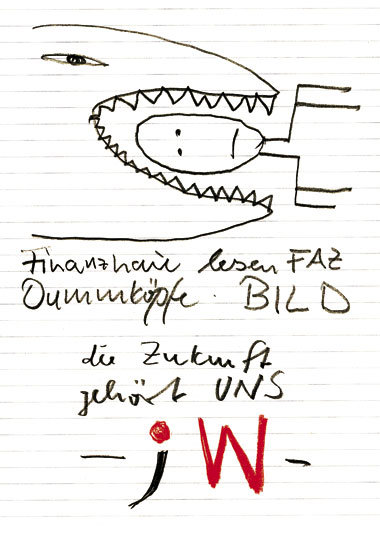 Finanzhaie lesen FAZ
Dummköpfe. BILD
die Zukunft
gehört UNS
– jW –